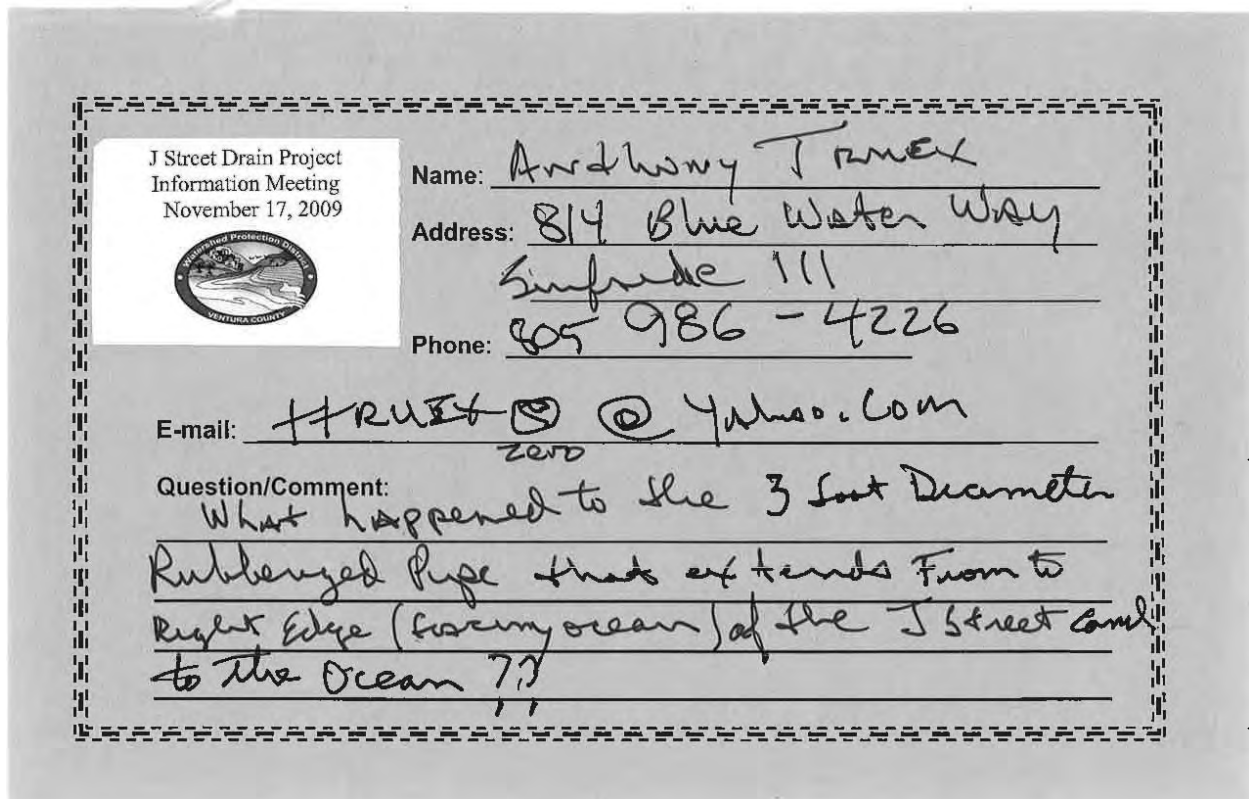 J Street Drain Project
Information Meeting
November 17, 2009
Watershed Protection District
VENTURA COUNTY
Name: Anthony
Address: 814 Blue Water Way
111
Phone: 805 986-4226
E-mail: @ Yahoo.Com
zero
Question/Comment:
What happened to the 3 foot Diameter
Rubberized Pipe that extends From to
Right Edge (facing ocean) of the J Street Canal
to the Ocean ???